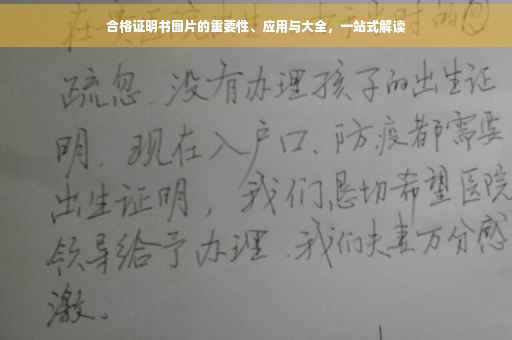 合格证明书图片的重要性、应用与大全，一站式解读
疏忽.没有办理孩子的出生证
明.现在入户口、防疫都需要
出生证明，我们恳切希望医院
领导给予办理.我们夫妻万分感
激。